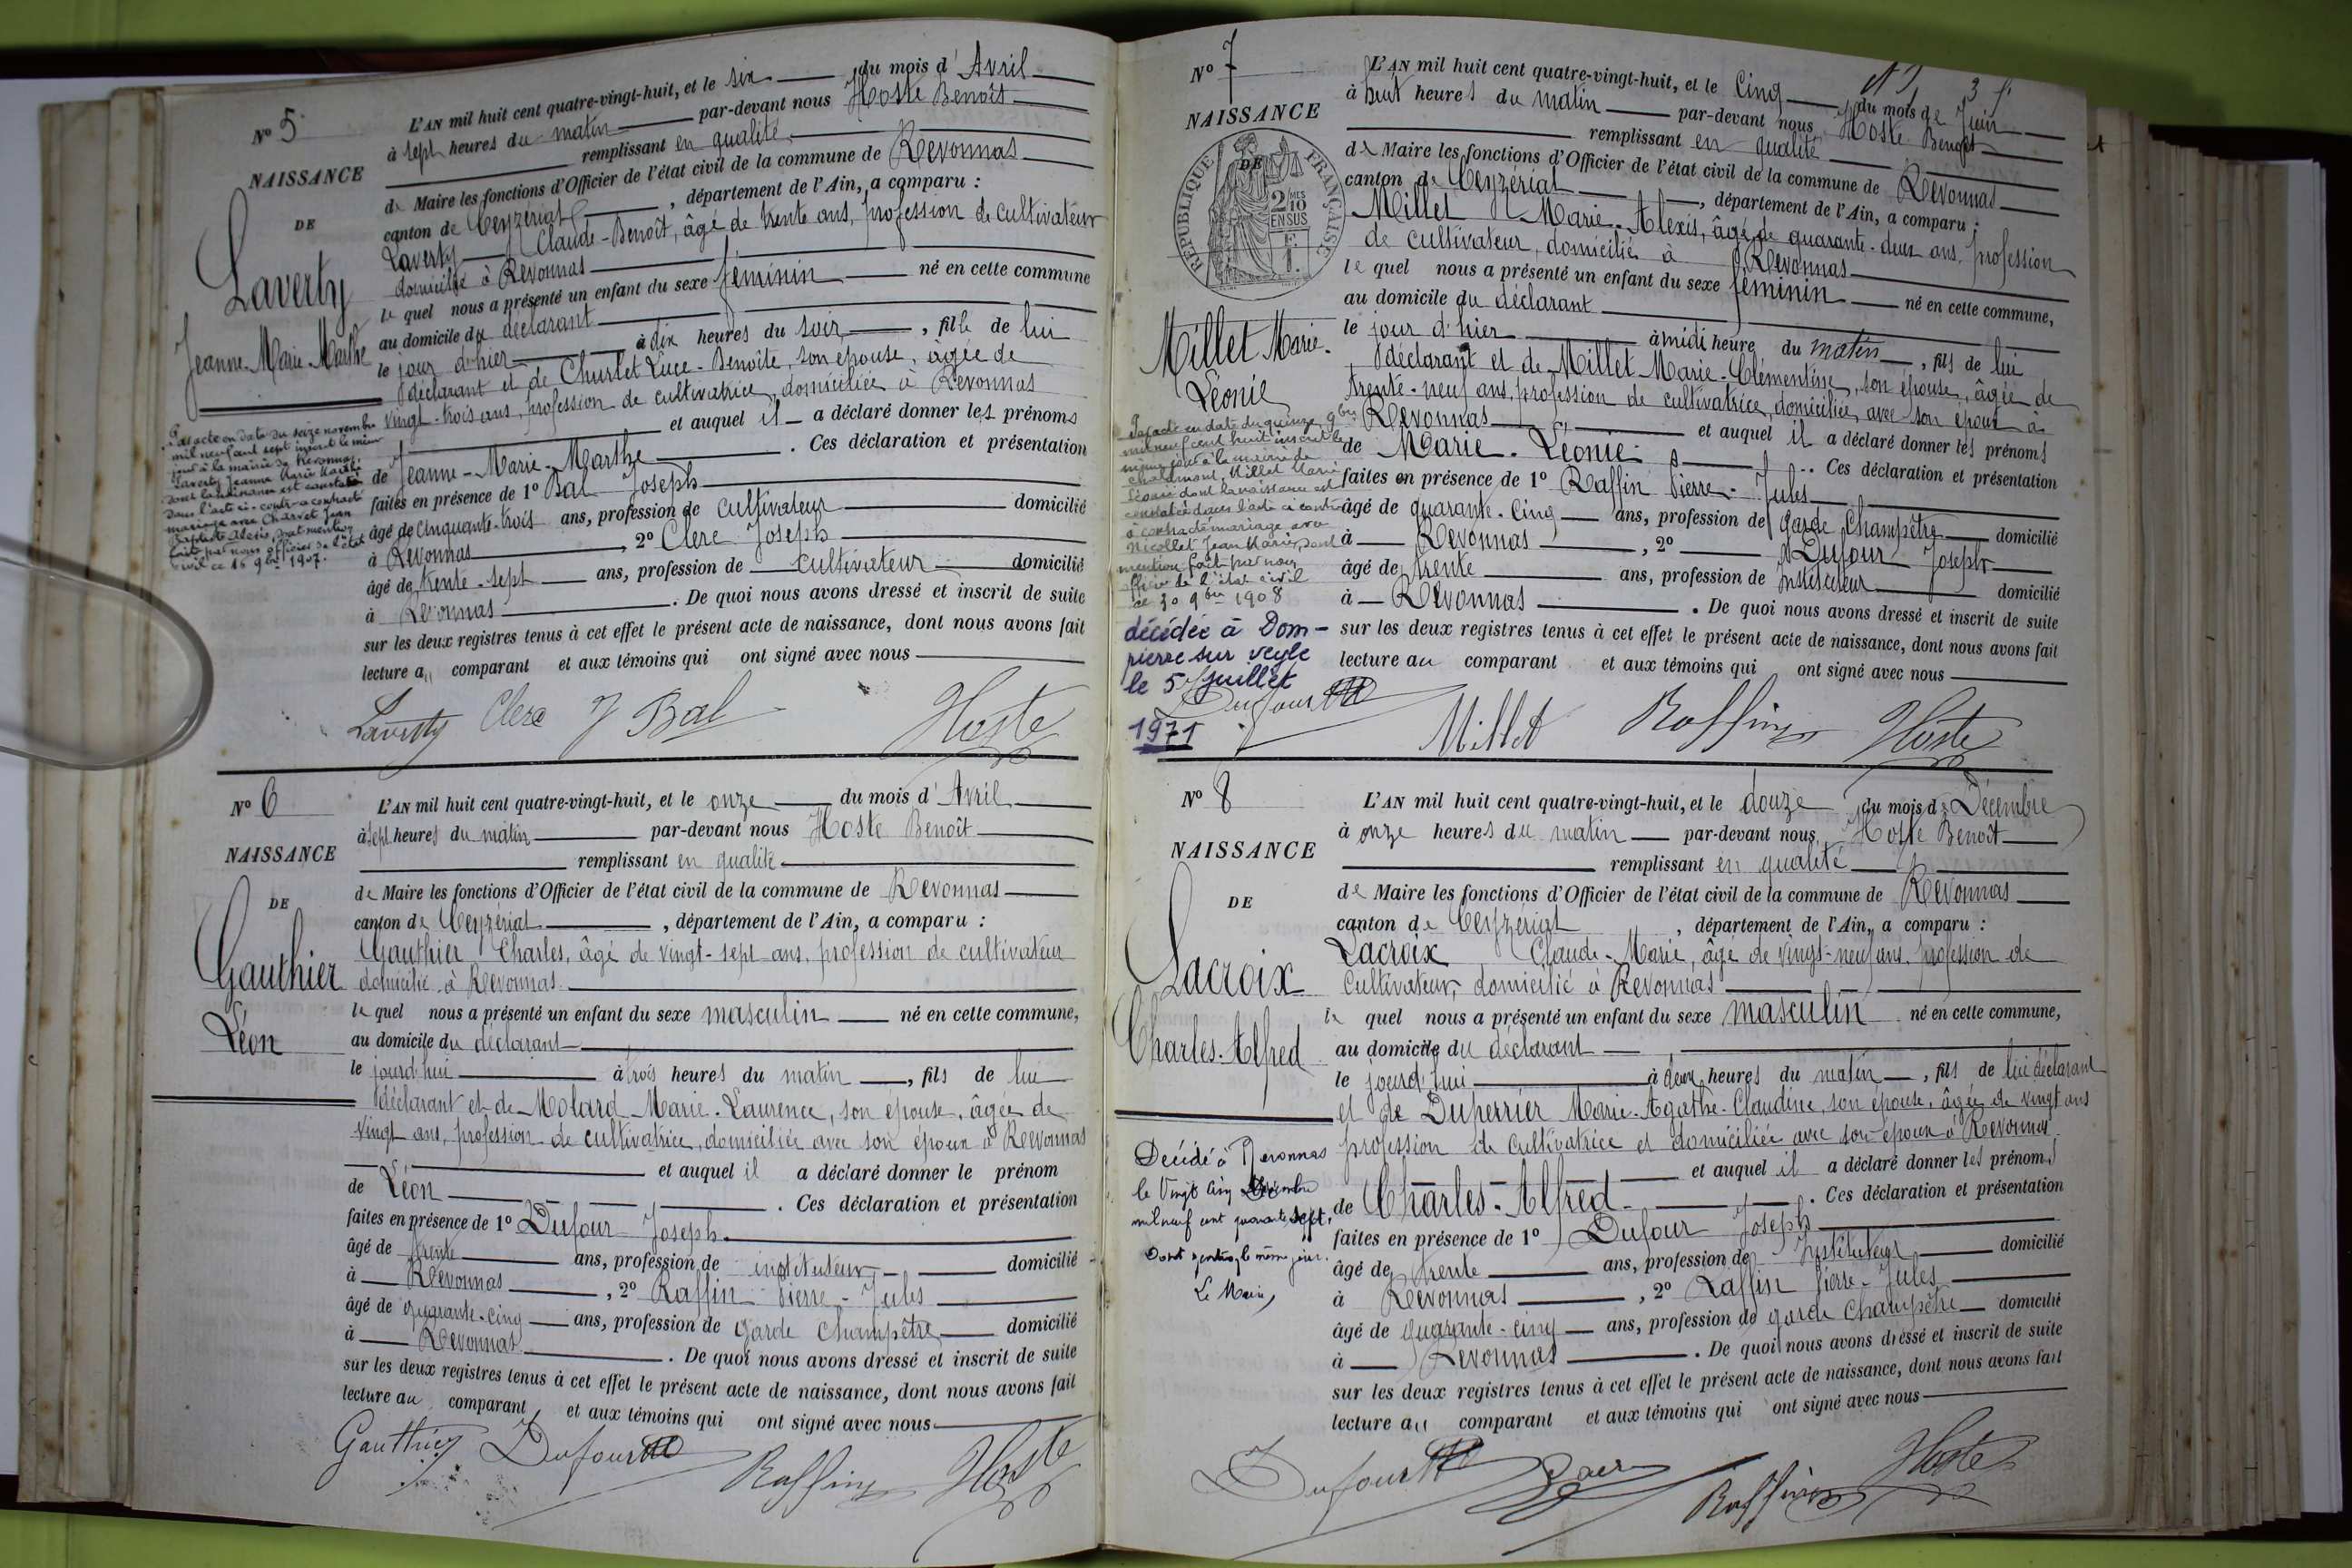 N° 5
NAISSANCE
DE
Laverty
Jeanne-Marie-Marthe
Par acte en date du seize novembre
mil neuf cent sept inscrit le même
jour à la mairie de Revonnas,
Laverty Jeanne Marie Marthe
dont la naissance est constatée
dans l'acte ci-contre a contracté
mariage avec Charvet Jean
Baptiste Alexis, dont mention
faite par nous officier de l'état
civil ce 16 9bre 1907.
L'AN mil huit cent quatre-vingt-huit, et le six du mois d'Avril
à sept heures du matin par-devant nous Hoste Benoît
remplissant en qualité
de Maire les fonctions d'Officier de l'état civil de la commune de Revonnas
canton de Ceyzériat, département de l'Ain, a comparu :
Laverty Claude-Benoît, âgé de trente ans, profession de cultivateur
domicilié à Revonnas
le quel nous a présenté un enfant du sexe féminin né en cette commune
au domicile du déclarant
le jour d'hier à dix heures du soir, fille de lui
déclarant et de Churlet Luce-Benoîte, son épouse, âgée de
vingt-trois ans, profession de cultivatrice, domiciliée à Revonnas
et auquel il a déclaré donner les prénoms
de Jeanne-Marie-Marthe. Ces déclaration et présentation
faites en présence de 1° Bal Joseph
âgé de cinquante-trois ans, profession de cultivateur domicilié
à Revonnas, 2° Clerc Joseph
âgé de trente-sept ans, profession de cultivateur domicilié
à Revonnas. De quoi nous avons dressé et inscrit de suite
sur les deux registres tenus à cet effet le présent acte de naissance, dont nous avons fait
lecture au comparant et aux témoins qui ont signé avec nous
Laverty Clerc J Bal Hoste
N° 6
NAISSANCE
DE
Gauthier
Léon
L'AN mil huit cent quatre-vingt-huit, et le onze du mois d'Avril
à sept heures du matin par-devant nous Hoste Benoît
remplissant en qualité
de Maire les fonctions d'Officier de l'état civil de la commune de Revonnas
canton de Ceyzériat, département de l'Ain, a comparu :
Gauthier Charles, âgé de vingt-sept ans, profession de cultivateur
domicilié à Revonnas
le quel nous a présenté un enfant du sexe masculin né en cette commune,
au domicile du déclarant
le jourd'hui à trois heures du matin, fils de lui
déclarant et de Molard Marie-Laurence, son épouse, âgée de
vingt ans, profession de cultivatrice, domiciliée avec son époux à Revonnas
et auquel il a déclaré donner le prénom
de Léon. Ces déclaration et présentation
faites en présence de 1° Dufour Joseph
âgé de trente ans, profession de instituteur domicilié
à Revonnas, 2° Raffin Pierre-Jules
âgé de quarante-cinq ans, profession de garde champêtre domicilié
à Revonnas. De quoi nous avons dressé et inscrit de suite
sur les deux registres tenus à cet effet le présent acte de naissance, dont nous avons fait
lecture au comparant et aux témoins qui ont signé avec nous
Gauthier Dufour Raffin Hoste
N° 7
NAISSANCE
DE
RÉPUBLIQUE FRANÇAISE
2/10 MES
EN SUS
1 F.
Millet Marie-
Léonie
Par acte en date du quinze 9bre
mil neuf cent huit inscrit le
même jour à la mairie de
Chalamont, Millet Marie
Léonie dont la naissance est
constatée dans l'acte ci contre
a contracté mariage avec
Nicollet Jean Marie, dont
mention fait par nous
officier de l'état civil
ce 30 9bre 1908
décédée à Dom-
pierre sur Veyle
le 5 Juillet
1971
L'AN mil huit cent quatre-vingt-huit, et le cinq du mois de Juin
à huit heures du matin par-devant nous Hoste Benoît
remplissant en qualité
de Maire les fonctions d'Officier de l'état civil de la commune de Revonnas
canton de Ceyzériat, département de l'Ain, a comparu :
Millet Marie-Alexis, âgé de quarante-deux ans, profession
de cultivateur, domicilié à Revonnas
le quel nous a présenté un enfant du sexe féminin né en cette commune,
au domicile du déclarant
le jour d'hier à midi heure du matin, fils de lui
déclarant et de Millet Marie-Clémentine, son épouse, âgée de
trente-neuf ans, profession de cultivatrice, domiciliée avec son époux à
Revonnas et auquel il a déclaré donner les prénoms
de Marie-Léonie. Ces déclaration et présentation
faites en présence de 1° Raffin Pierre-Jules
âgé de quarante-cinq ans, profession de garde champêtre domicilié
à Revonnas, 2° Dufour Joseph
âgé de trente ans, profession de instituteur domicilié
à Revonnas. De quoi nous avons dressé et inscrit de suite
sur les deux registres tenus à cet effet le présent acte de naissance, dont nous avons fait
lecture au comparant et aux témoins qui ont signé avec nous
Dufour Millet Raffin Hoste
N° 8
NAISSANCE
DE
Lacroix
Charles-Alfred
Décédé à Revonnas
le Vingt cinq
mil neuf cent quarante sept,
le même jour.
Le Maire,
L'AN mil huit cent quatre-vingt-huit, et le douze du mois de Décembre
à onze heures du matin par-devant nous Hoste Benoît
remplissant en qualité
de Maire les fonctions d'Officier de l'état civil de la commune de Revonnas
canton de Ceyzériat, département de l'Ain, a comparu :
Lacroix Claude-Marie, âgé de vingt-neuf ans, profession de
cultivateur, domicilié à Revonnas
le quel nous a présenté un enfant du sexe masculin né en cette commune,
au domicile du déclarant
le jourd'hui à deux heures du matin, fils de lui déclarant
et de Duperrier Marie-Agathe-Claudine, son épouse, âgée de vingt ans
profession de cultivatrice et domiciliée avec son époux à Revonnas
et auquel il a déclaré donner les prénoms
de Charles-Alfred. Ces déclaration et présentation
faites en présence de 1° Dufour Joseph
âgé de trente ans, profession de instituteur domicilié
à Revonnas, 2° Raffin Pierre-Jules
âgé de quarante-cinq ans, profession de garde champêtre domicilié
à Revonnas. De quoi nous avons dressé et inscrit de suite
sur les deux registres tenus à cet effet le présent acte de naissance, dont nous avons fait
lecture au comparant et aux témoins qui ont signé avec nous
Dufour Raffin Hoste